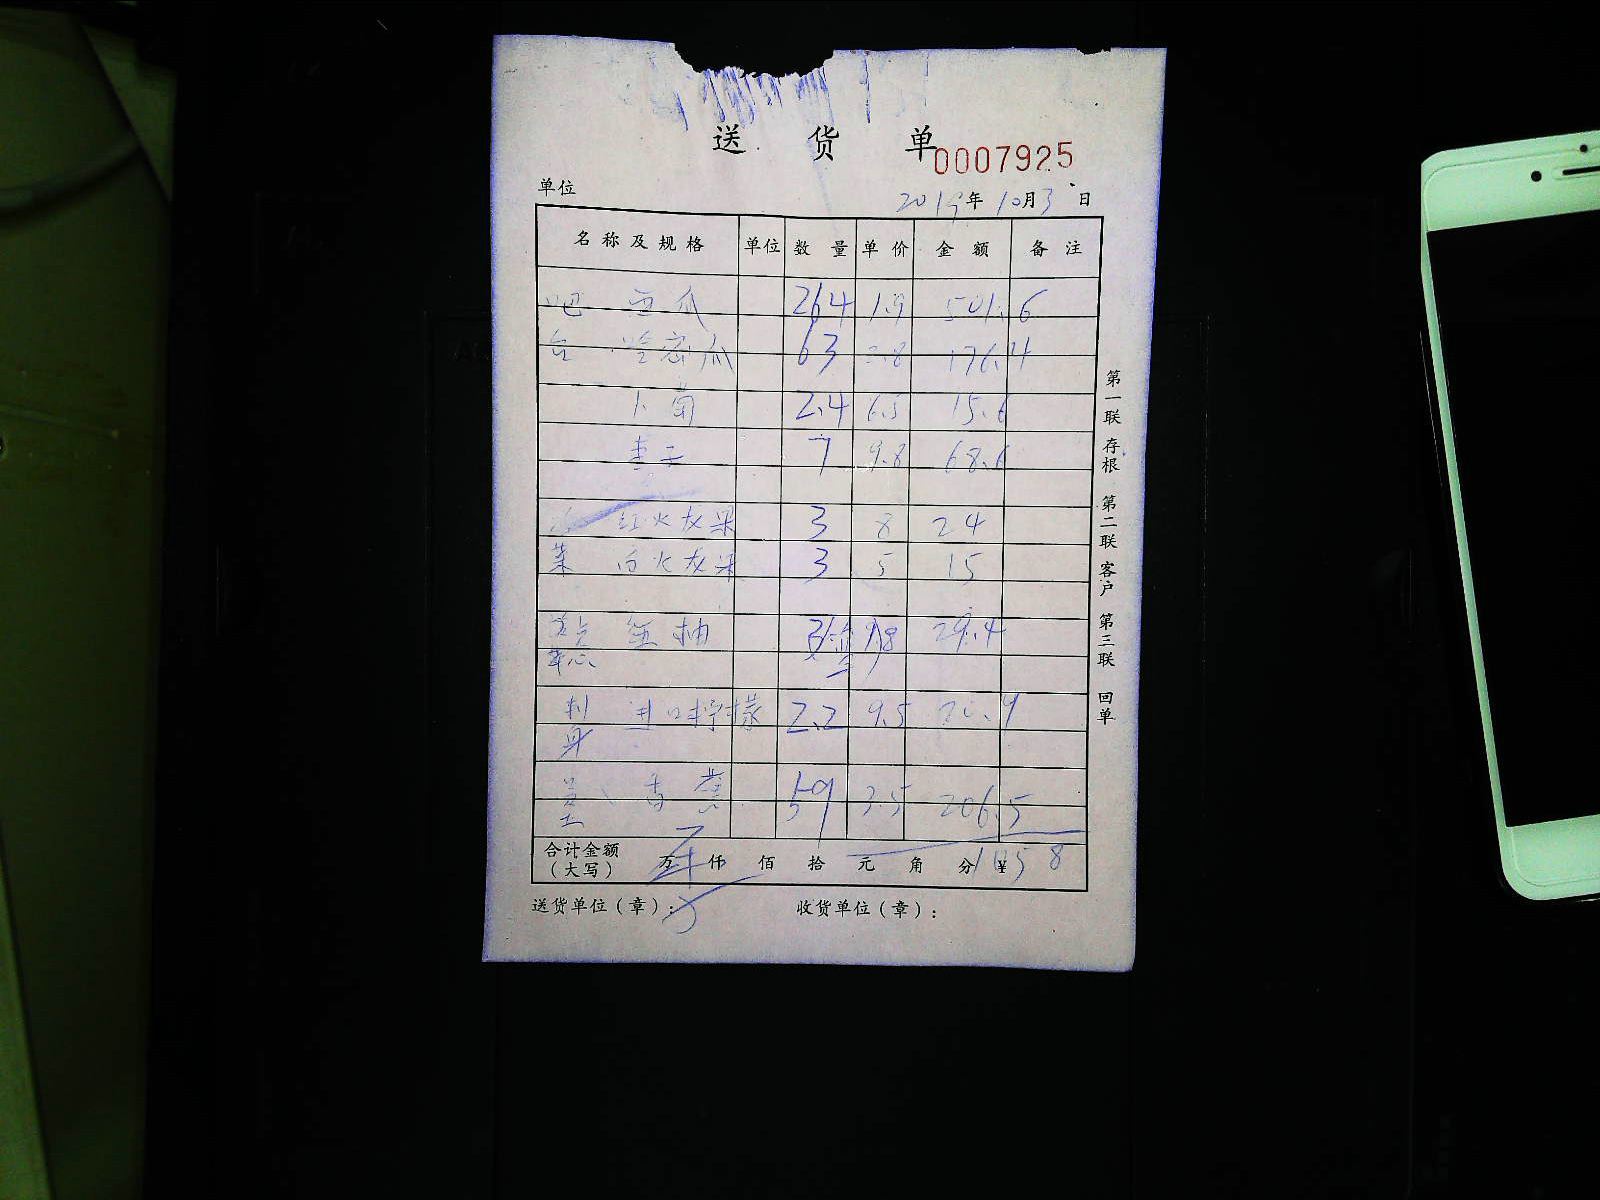 送 货 单 0007925
单位
2019年10月3日
名称及规格 单位 数量 单价 金额 备注
吧 西瓜 264 1.9 501.6
台 哈密瓜 63 2.8 176.4
卜萄 2.4 6.5 15.6
李子 7 9.8 68.6
红火龙果 3 8 24
菜 白火龙果 3 5 15
点 金柚 9.8 29.4
刺 进口柠檬 2.2 9.5 20.9
身
香蕉 59 3.5 206.5
合计金额
(大写) 万 仟 佰 拾 元 角 分 ¥ 1058
送货单位(章): 收货单位(章):
第一联 存根 第二联 客户 第三联 回单